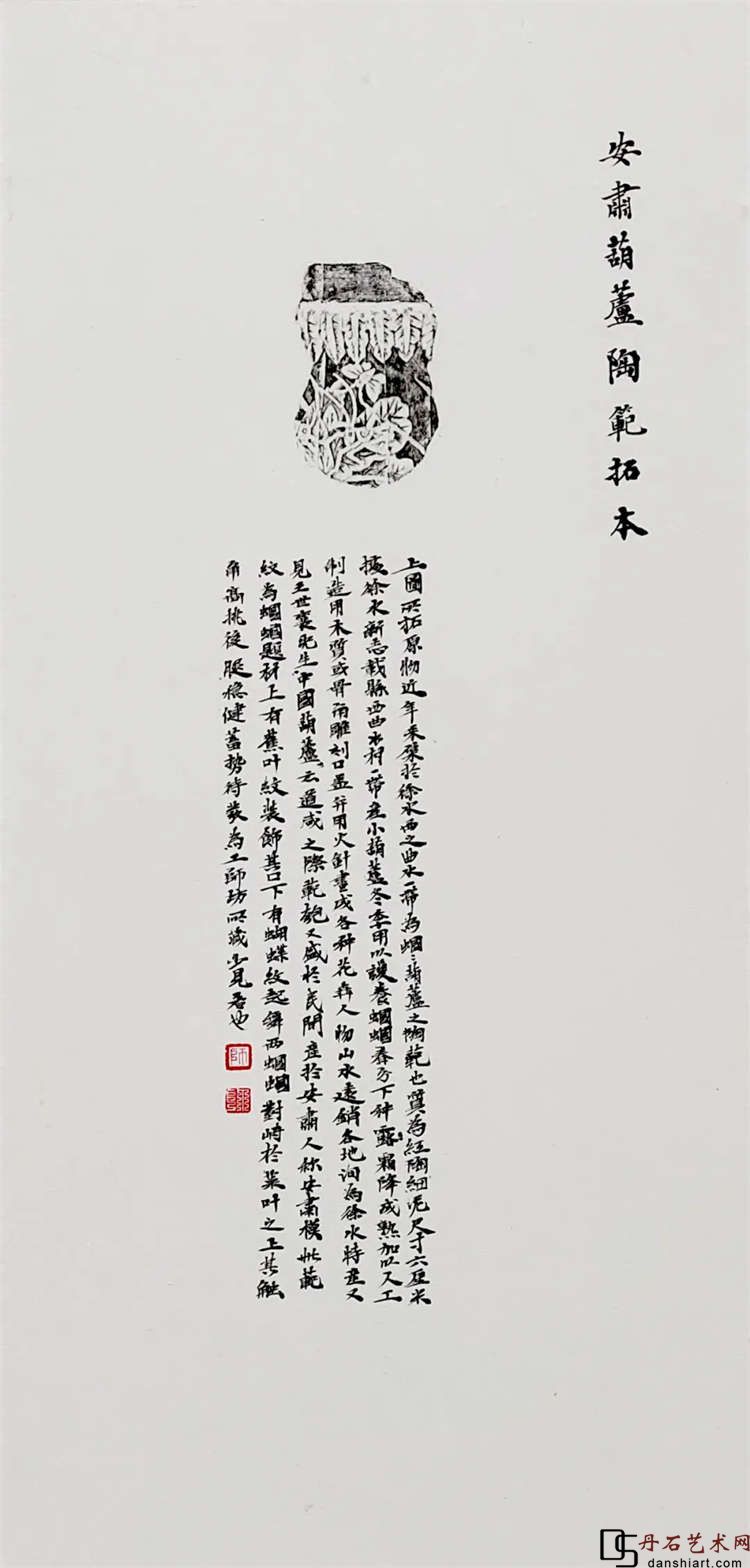 安肅葫蘆陶範拓本
上圖所拓原物近年采集於徐水西之曲水一帶為蝈〻葫蘆之陶範也質為紅陶細泥尺寸六厘米
據徐水新志載縣西曲水村一帶産小葫蘆冬季用以護養蝈蝈春分下种霜降成熟加以人工
制造用木質或骨雨雕刻口盖并用火針畫成各种花卉人物山水遠銷各地洵為徐水特産又
見王世襄先生中國葫蘆云道咸之際範匏又盛於民間産於安肅人称安肅模此範
紋為蝈蝈題材上有蕉叶紋裝飾其口下有蝴蝶紋起舞两蝈蝈對峙於菜叶之上其触
角高挑後腿稳健蓄勢待發為工師坊所藏少見者也
丹石艺术网
danshiart.com